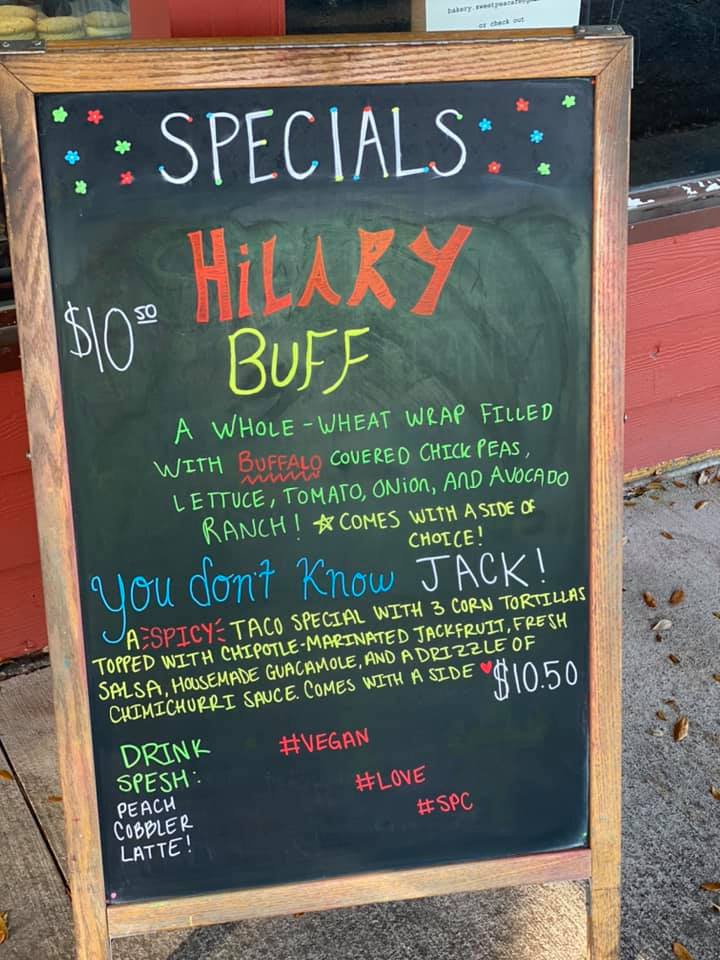 bakery.sweetpeacafe@
or check out
SPECIALS
HiLARY
$10.50
BUFF
A WHOLE-WHEAT WRAP FILLED
WITH BUFFALO COVERED CHICKPEAS,
LETTUCE, TOMATO, ONiON, AND AVOCADO
RANCH! ☆ COMES WITH A SIDE OF
CHOICE!
you don't know JACK!
A SPICY TACO SPECIAL WITH 3 CORN TORTILLAS
TOPPED WITH CHIPOTLE-MARINATED JACKFRUIT, FRESH
SALSA, HOUSEMADE GUACAMOLE, AND A DRIZZLE OF
CHIMICHURRI SAUCE. COMES WITH A SIDE ♥ $10.50
DRINK
SPESH:
PEACH
COBBLER
LATTE!
#VEGAN
#LOVE
#SPC